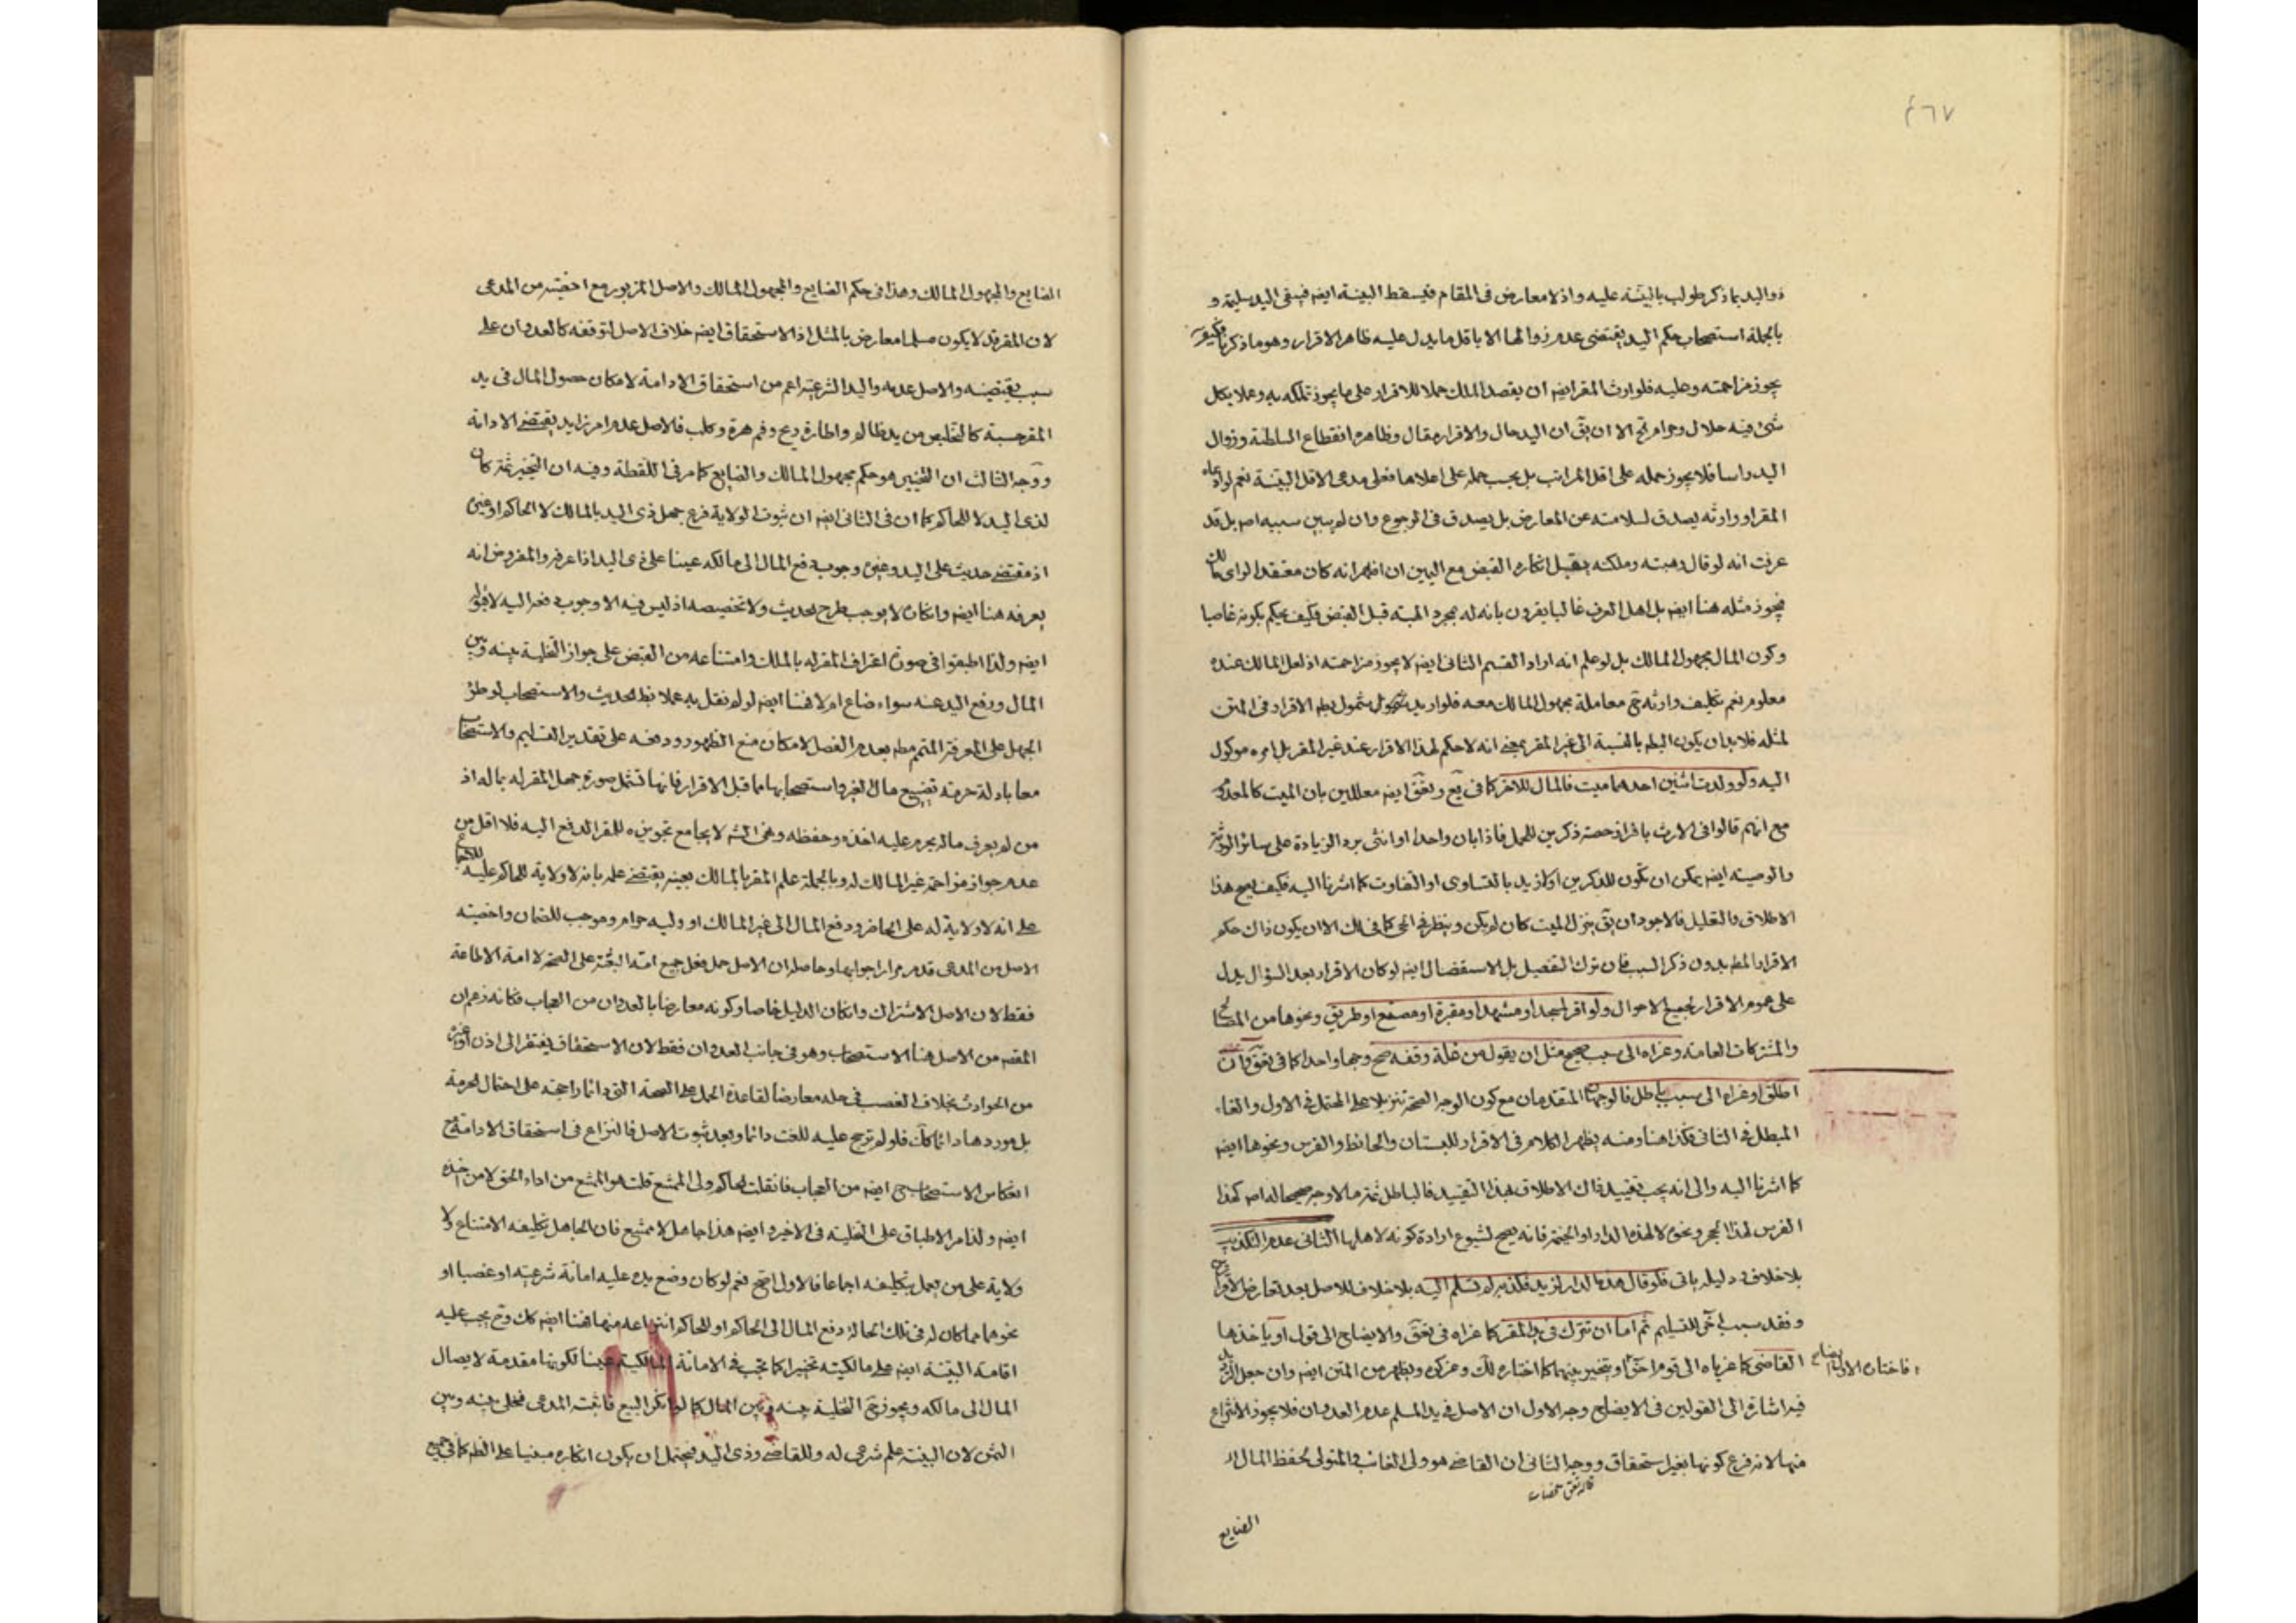 ٤٦٧
ذو اليد بما ذكر طولب بالبينة عليه واذ لا معارض فى المقام فيسقط البينة ايضه فيبقى اليد سليمة و
بالجملة استصحاب حكم اليد يقتضى عدم زوالها الا باقل ما يدل عليه ظاهر الاقرار وهو ما ذكرنا فكيف
يجوز مزاحمته وعليه فلوارث المقر ايضه ان يقصد الملك حملا للاقرار على ما يجوز تملكه به وعملا بكل
شئ فيه حلال وحرام الا ان يق ان اليد حال والاقرار مقال وظاهره انقطاع السلطنة وزوال
اليد راسا فلا يجوز حمله على اقل المراتب بل يجب حمله على اعلاها فعلى مدعى الاقل البينة نعم لو ادعاه
المقر او وارثه يصدق لسلامته عن المعارض بل يصدق فى الرجوع وان لم يبين سببه اصه بل قد
عرفت انه لو قال وهبته وملكته يقبل انكاره القبض مع اليمين ان اظهر انه كان معتقدا لراى مالك
فيجوز مثله هنا ايضه بل اهل العرف غالبا يقرون بانه له بمجرد الهبة قبل القبض فكيف يحكم بكونه غاصبا
وكون المال مجهول المالك بل لو علم انه اراد القسم الثانى ايضه لا يجوز مزاحمته اذ لعل المالك عنده
معلوم نعم تكليف وارثه معاملة مجهول المالك معه فلو اريد شمول بط الاقرار فى المتن
لمثله فلابد ان يكون البط بالنسبة الى غير المقر بمعنى انه لا حكم لهذا الاقرار عند غير المقر بل امره موكول
اليه ولو ولدت اثنين احدهما ميت فالمال للاخر كما فى يع وتعق ايضه معللين بان الميت كالمعدوم
مع انهم قالوا فى الارث بافراز حصة ذكرين للحمل فاذا بان واحدا او انثى يرد الزيادة على سائر الورثة
والوصية ايضه يمكن ان تكون للذكرين او ازيد بالتساوى او التفاوت كما اشرنا اليه فكيف يصح هذا
الاطلاق والتعليل فالاجود ان يق ينزل الميت كان لم يكن وينظر فى الحى كما فى لك الا ان يكون ذاك حكم
الاقرار المط بدون ذكر السبب فان ترك التفصيل بل الاستفصال ايضه لو كان الاقرار بعد السؤال يدل
على عموم الاقرار لجميع الاحوال ولو اقر لمسجد او مشهد او مقبرة او مصنع او طريق ونحوها من المصالح
والمشتركات العامة وعزاه الى سبب صحيح مثل ان يقول من غلة وقفه صح وجها واحدا كما فى تعق وان
اطلق او عزاه الى سبب باطل فالوجهان المتقدمان مع كون الوجه الصحة تنزيلا على المحتمل فى الاول والغاء
المبطل فى الثانى فكذا هنا ومنه يظهر الكلام فى الاقرار للبستان والحائط والفرس ونحوها ايضه
كما اشرنا اليه والى انه يجب تقييد ذاك الاطلاق بهذا التقييد فالباطل ثمة ما لا وجه صحيحا له اصه كهذا
الفرس لهذا الحجر ونحوه لا لهذه الدار او الخيمة فانه يصح لشيوع ارادة كونه لاهلها الثانى عدم التكذيب
بلا خلاف ودليله ياتى فلو قال هذه الدار لزيد فكذبه لم تسلم اليه بلا خلاف للاصل بعد تعارض الاقرارين
وفقد سبب اخر للتسليم ثم اما ان تترك فى يد المقر كما عزاه فى تعق والايضاح الى قول او ياخذها
القاضى كما عزياه الى قوم اخر او يتخير بينهما كما اختاره لك وعزكره ويظهر من المتن ايضه وان جعل
فاختار الاول الايضاح
فيه اشارة الى القولين فى الايضاح وجه الاول ان الاصل فى يد المسلم عدم العدوان فلا يجوز الانتزاع
منها لانه فرع كونها بغير استحقاق ووجه الثانى ان القاضى هو ولى الغائب والمتولى لحفظ المال
الضايع
الضايع والمجهول المالك وهذا فى حكم الضايع والمجهول المالك والاصل المزبور مع اخصيته من المدعى
لان المقر قد لا يكون مسلما معارض بالمثل اذ الاستحقاق ايضه خلاف الاصل لتوقفه كالعدوان على
سبب يقتضيه والاصل عدمه واليد الشرعية اعم من استحقاق الادامة لامكان حصول المال فى يد
المقر حسبة كالتخليص من يد ظالم واطارة ريح وفم هرة وكلب فالاصل عدم امر زايد يقتضى الادامة
ووجه الثالث ان التخيير هو حكم مجهول المالك والضايع كما مر فى اللقطة وفيه ان التخيير ثمة كان
لذى اليد لا للحاكم كما ان فى الثانى ايضه ان ثبوت الولاية فرع جهل ذى اليد بالمالك لا الحاكم او غيره
اذ مقتضى حديث على اليد وغيره وجوب دفع المال الى مالكه عينا على ذى اليد اذا عرفه والمفروض انه
يعرفه هنا ايضه وانكاره لا يوجب طرح الحديث ولا تخصيصه اذ ليس فيه الا وجوب دفعه اليه لا قبوله
ايضه ولذا اطبقوا فى صورة اعتراف المقر له بالملك وامتناعه من القبض على جواز التخلية بينه وبين
المال ورفع اليد عنه سواء ضاع ام لا فهنا ايضه لو لم نقل به عملا بظ الحديث والاستصحاب لو طرؤ
الجهل على المعرفة المتمم مط بعدم الفصل لامكان منع الظهور ودفعه على تقدير التسليم والاستصحاب
معا بادلة حرمة تضييع مال الغير واستصحابها مما قبل الاقرار فانها تشمل صورة جهل المقر له بماله اذ
من لم يعرف ماله يحرم عليه اخذه وحفظه وهى لا يجامع تجويزه للمقر الدفع اليه فلا اقل من
عدم جواز مزاحمة غير المالك له وبالجملة علم المقر بالمالك بعينه يقتضى علمه بانه لا ولاية للحاكم عليه للاجماع
على انه لا ولاية له على الحاضر ودفع المال الى غير المالك او وليه حرام وموجب للضمان واخصية
الاصل من المدعى قد مر مرارا جوابها وحاصله ان الاصل حمل فعل جميع امة النبى على الصحة لا امة الاطاعة
فقط لان الاصل الاشتراك وان كان الدليل خاصا وكونه معارضا بالعدوان من العجاب فكانه زعم ان
المقصد من الاصل هنا الاستصحاب وهو فى جانب العدوان فقط لان الاستحقاق يفتقر الى اذن او غيره
من الحوادث بخلاف الغصب فى جعله معارضا لقاعدة الحمل على الصحة التى دائما راجحة على احتمال الحرمة
بل موردها دائما كك فلو لم ترجح عليه للغت دائما وبعد ثبوت الاصل فالنزاع فى استحقاق الادامة
انعكاس الاستصحاب ايضه من العجاب فان قلت الحاكم ولى الممتنع قلت هو الممتنع من اداء الحق لا من اخذه
ايضه ولذا مر الاطباق على التخلية فى الاخير وايضه هذا جاهل لا ممتنع فان الجاهل بتكليفه الامتناع ولا
ولاية على من يعمل بتكليفه اجماعا فالاول اصح نعم لو كان وضع يده عليه امانة شرعية او غصبا او
نحوهما مما كان له فى تلك الحالة دفع المال الى الحاكم او للحاكم انتزاعه منها فهنا ايضه كك وح يجب عليه
اقامة البينة ايضه على مالكيته تخييرا كما تجب فى الامانة المالكية عينا لكونها مقدمة لايصال
المال الى مالكه ويجوز التخلية بينه وبين المال كما لو انكر البيع فاثبته المدعى فخلى بينه وبين
الثمن لان البينة علم شرعى له وللقاضى وذى اليد فيحتمل ان يكون انكاره مبنيا على الظم كما فى جميع